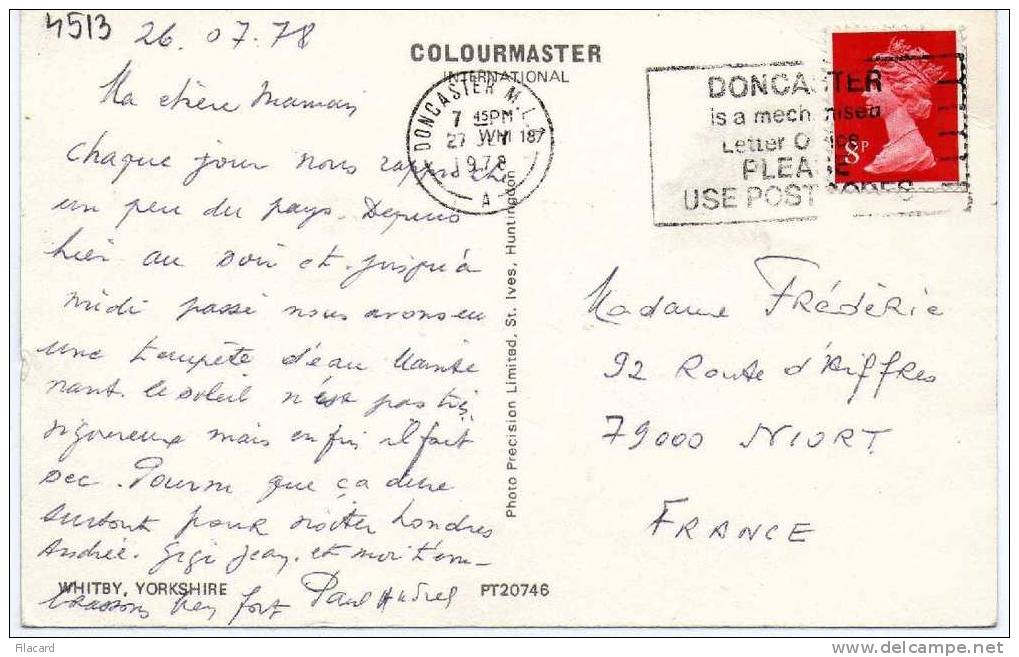 4513
26.07.78
COLOURMASTER
INTERNATIONAL
Ma chère Maman
chaque jour nous rapproche
un peu du pays. Depuis
hier au soir et jusqu'à
midi passé nous avons eu
une tempête d'eau. Mainte
nant le soleil n'est pas très
vigoureux mais enfin il fait
sec. Pourvu que ça dure
surtout pour visiter Londres
Andrée. Gigi Jean. et moi t'em-
brassons bien fort
WHITBY, YORKSHIRE
PT20746
Photo Precision Limited, St. Ives, Huntingdon
DONCASTER
7 45PM
27
1978
A
DONCASTER
is a mechanised
Letter Office
PLEASE
USE POSTCODES
8P
Madame Frédéric
92 Route d'Aiffres
79000 NIORT
FRANCE
Filacard
delcampe.net